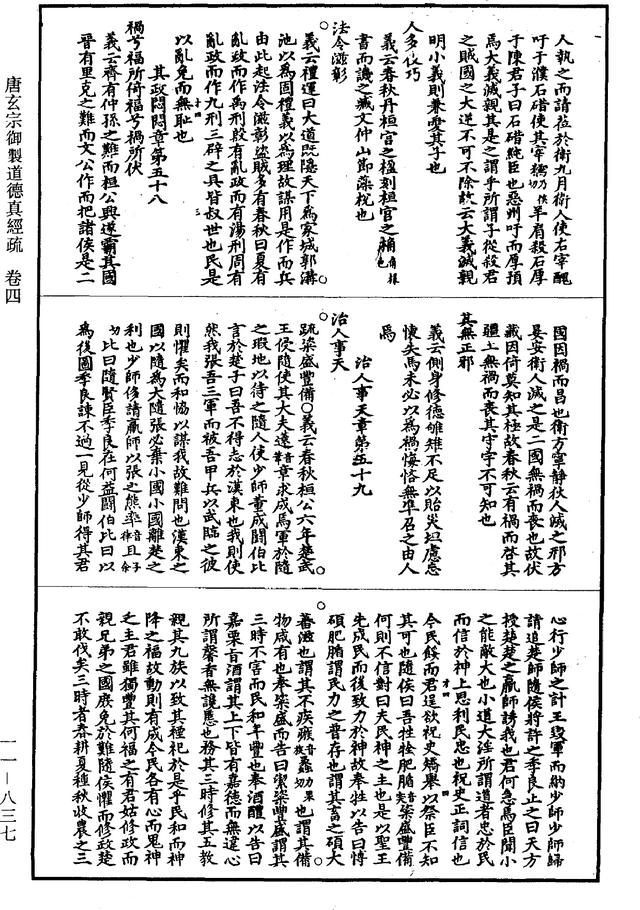 人執之而請莅於衛九月衛人使右宰醜
吁于濮石碏使其宰獳羊肩殺石厚
于陳君子曰石碏純臣也惡州吁而厚預
焉大義滅親其是之謂乎所謂子從殺君
之賊國之大逆不可不除故云大義滅親
明小義則兼愛其子也
人多伎巧
義云春秋丹桓宮之楹刻桓宮之桷
書而譏之臧文仲山節藻梲也
法令滋彰
義云禮運曰大道既隱天下為家城郭溝
池以為固禮義以為理故謀用是作而兵
由此起法令滋彰盜賊多有春秋曰夏有
亂政而作禹刑殷有亂政而有湯刑周有
亂政而作九刑三辟之具皆叔世也民是
以亂免而無恥也
其政悶悶章第五十八
禍兮福所倚福兮禍所伏
義云齊有仲孫之難而桓公興遂霸其國
晉有里克之難而文公作而把諸侯是二
國因禍而昌也衛方寧靜狄人滅之邢方
晏安衛人滅之是二國無禍而喪也故伏
藏因倚莫知其極故春秋云有禍而啓其
疆土無禍而喪其守宇不可知也
其無正邪
義云側身修德雊雉不足以貽災坦慮忘
懷失馬未必以為禍悔悋無準召之由人
焉
治人事天章第五十九
治人事天
疏粢盛豐備○義云春秋桓公六年楚武
王侵隨使其大夫薳章求成焉軍於隨
之瑕地以待之隨人使少師董成鬬伯比
言於楚子曰吾不得志於漢東也我則使
然我張吾三軍而被吾甲兵以武臨之彼
則懼矣而和協以謀我故難問也漢東之
國以隨為大隨張必棄小國小國離楚之
利也少師侈請羸師以張之熊率且
比曰隨賢臣季良在何益鬬伯比曰以
為後圖季良諫不過一見從少師得其君
心行少師之計王毀軍而納少師少師歸
請追楚師隨侯將許之季良止之曰天方
授楚楚之羸師誘我也君何急焉臣聞小
之能敵大也小道大淫所謂道者忠於民
而信於神上思利民忠也祝史正詞信也
今民餒而君逞欲祝史矯舉以祭臣不知
其可也隨侯曰吾牲牷肥腯粢盛豐備
何則不信對曰夫民神之主也是以聖王
先成民而後致力於神故奉牲以告曰博
碩肥腯謂民力之普存也謂其畜之碩大
蕃滋也謂其不疾瘯蠡也謂其備
物咸有也奉粢盛而告曰潔粢豐盛謂其
三時不害而民和年豐也奉酒醴以告曰
嘉栗旨酒謂其上下皆有嘉德而無違心
所謂馨者無讒慝也務其三時修其五教
親其九族以致其禋祀於是乎民和而神
降之福故動則有成今民各有心而鬼神
乏主君雖獨豐其何福之有君姑修政而
親兄弟之國庶免於難隨侯懼而修政楚
不敢伐矣三時者春耕夏種秋收農之三
唐玄宗御製道德真經疏 卷四
一一－八三七